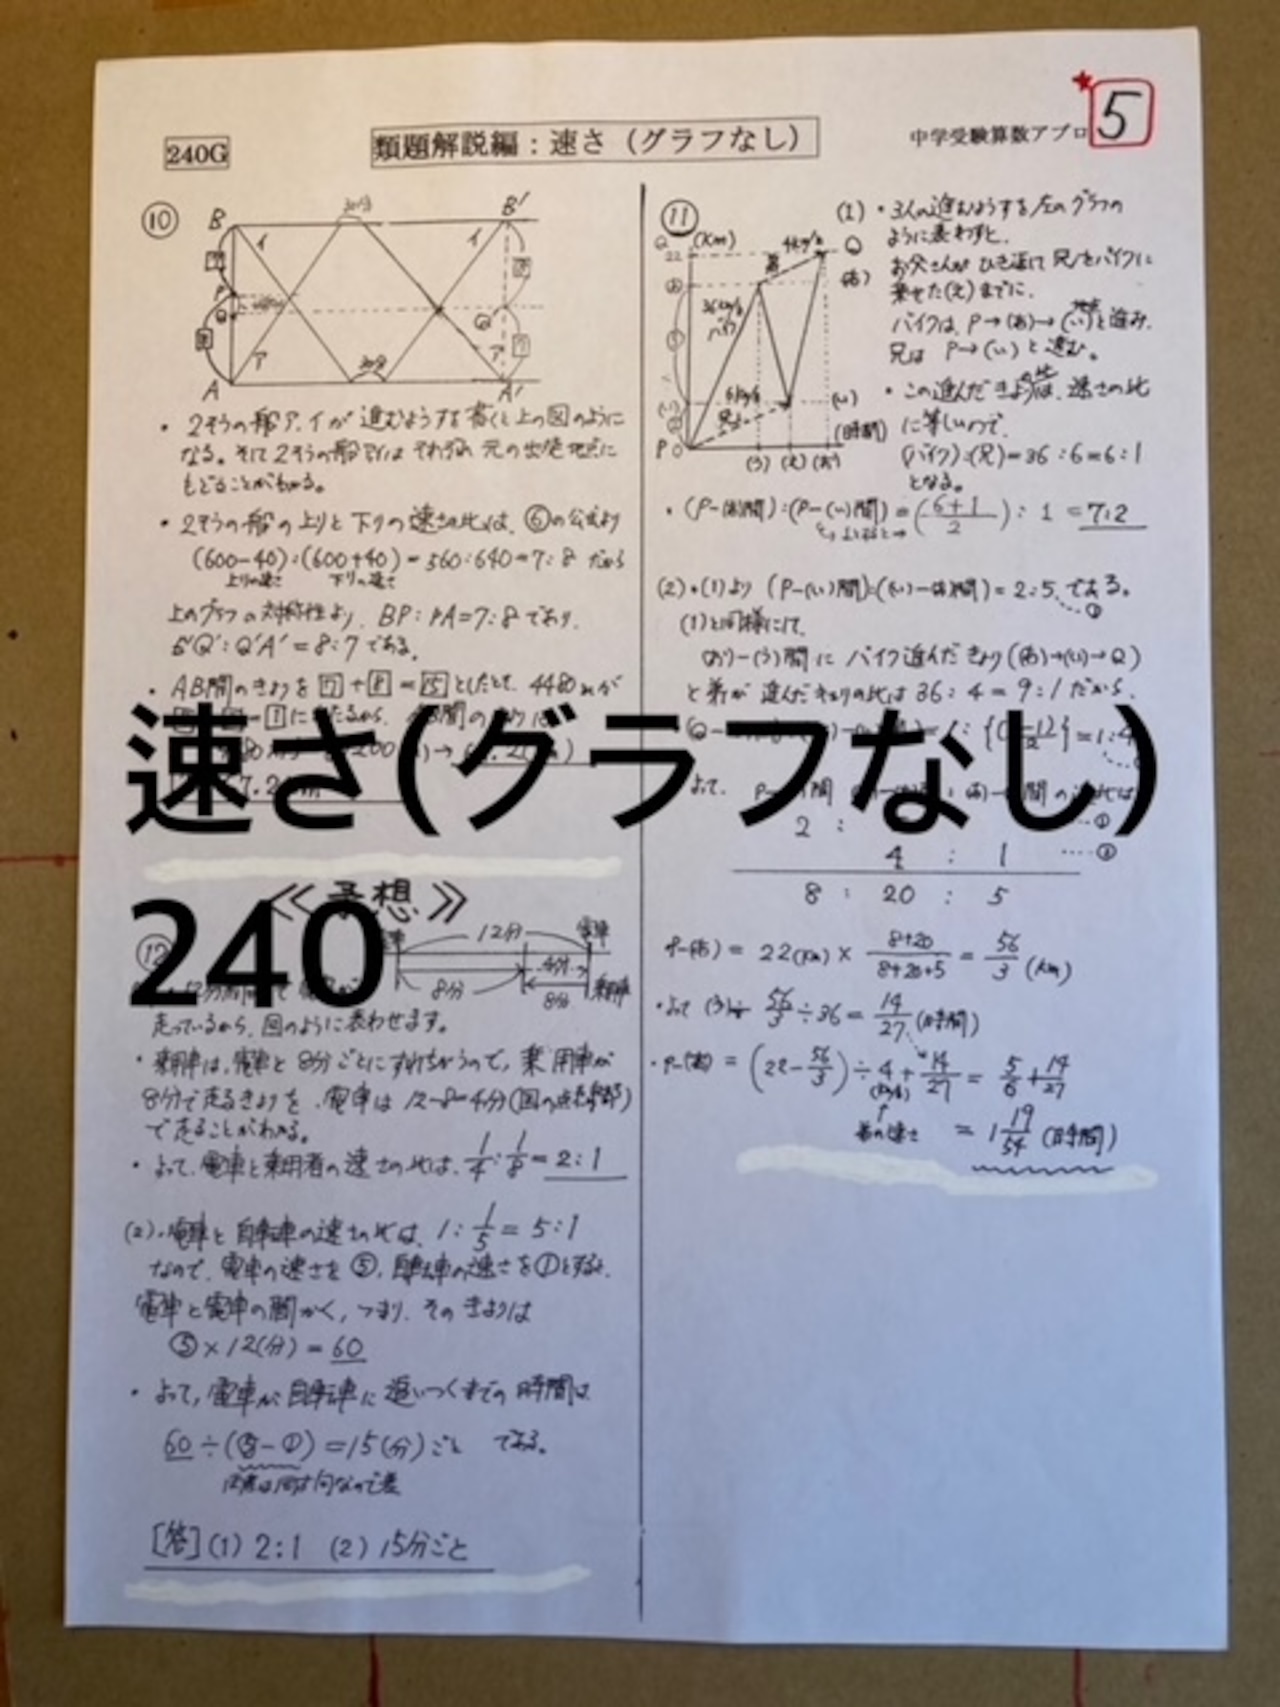 240G
類題解説編：速さ（グラフなし）
中学受験算数アプロ
5
⑩
B
30分
B'
イ
イ
P
Q
Q'
ア
ア
A
30分
A'
・2そうの船ア、イが進むようすを書くと上の図のように
なる。そして2そうの船アイはそれぞれ元の出発地点に
もどることがわかる。
・2そうの船の上りと下りの速さの比は、⑥の公式より
(600-40):(600+40)=560:640=7:8 だから
上りの速さ 下りの速さ
上のグラフの対称性より、BP:PA=7:8であり、
B'Q':Q'A'=8:7である。
・AB間のきょりを 7 + 8 = 15 としたとき、448
速さ(グラフなし)
240
《予想》
⑫
12分
電車
4分
8分
8分
乗用車
走っているから、図のように表わせます。
・乗用車は、電車と8分ごとにすれちがうので、乗用車が
8分で走るきょりを、電車は12-8=4分(図の点線部)
で走ることがわかる。
・よって、電車と乗用者の速さの比は、1/4:1/8=2:1
(2)・電車と自転車の速さの比は、1:1/5=5:1
なので、電車の速さを⑤、自転車の速さを①とすると、
電車と電車の間かく、つまり、そのきょりは
⑤×12(分)=60
・よって、電車が自転車に追いつくまでの時間は
60÷(⑤-①)=15(分)ごと である。
[答](1) 2:1 (2) 15分ごと
⑪
(Km)
22
4km/h
弟
Q
(あ)
36km/h
バイク
6km/h
兄
(い)
P 0
(時間)
(う) (え) (お)
(1)・3人の進むようすを左のグラフの
ように表わすと、
お父さんがひき返して兄をバイクに
乗せた(え)までに、
バイクは、P→(あ)→(い)地点と進み、
兄は P→(い)と進む。
・この進んだきょりの比は、速さの比
に等しいので、
(バイク):(兄)=36:6=6:1
となる。
・(P-(あ)間):(P-(い)間)=(6+1/2):1=7:2
(2)・(1)より (P-(い)間):((い)-(あ)間)=2:5 である。
(1)と同様にして、
(お)-(う)間にバイク進んだきょり((あ)→(い)→Q)
と弟が進んだキョリの比は36:4=9:1だから、
よって、
2 :
4 : 1
8 : 20 : 5
P-(あ)=22(Km)×8+20/8+20+5=56/3(Km)
・よって(う)は 56/3÷36=14/27(時間)
・P-(お)=(22-56/3)÷4+14/27=5/6+14/27
(km/h)
弟の速さ
=1 19/54(時間)